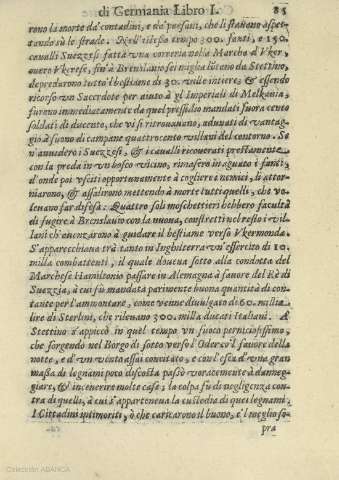 di Germania Libro I. 85
rono la morte da' contadini, e da' paesani, che li stauano aspet-
tando sù le strade. Nell'istesso tempo 300. fanti, e 150.
caualli Suezzesi fatta vna correria nella Marcha d'Vker,
ouero Vkerese, fin'à Brenslauio sei miglia lūtano da Stettino,
depredarono tutto l'bestiame di 30. ville intiere; & essendo
ricorso vn Sacerdote per aiuto à gl'Imperiali di Melkouia,
furono immediatamente da quel pressidio mandati fuora cento
soldati di ducento, che vi si ritrouauano, adunati di vantag-
gio à suono di campane quattrocento villani del contorno. Se
n'auuidero i Suezzesi, & i caualli ricouerati prestamente
con la preda in vn bosco vicino, rimasero in aguato i fanti,
d'onde poi vsciti opportunamente à cogliere i nemici, li attor-
niarono, & assalirono mettendo à morte tutti quelli, che vo-
leuano far difesa: Quattro soli moschettieri hebbero facultà
di fugire à Brenslauio con la nuoua, constretti nel resto i vil-
lani ch'euenzarono à guidare il bestiame verso Vkermonda.
S'apparecchiaua trà tanto in Inghilterra vn'essercito di 10.
milla combattenti, il quale doueua sotto alla condotta del
Marchese Hamiltonio passare in Alemagna à fauore del Rè di
Suezzia, à cui fù mandata parimente buona quantità di con-
tante per l'ammontare, come venne diuulgato di 60. milla
lire di Sterlini, che rileuano 300. milla ducati Italiani. A
Stettino s'appiccò in quel tempo vn fuoco perniciosissimo,
che sorgendo nel Borgo di sotto verso l'Odera co'l fauore della
notte, e d'vn vento assai concitato, e con l'esca d'vna gran
massa de legnami poco discosta passò voracemente à danneg-
giare, & incenerire molte case; la colpa fù di negligenza con-
tra di quelli, à cui s'apparteneua la custodia di quei legnami.
I Cittadini intimoriti, ò che caricarono il buono, e'l meglio so-
pra
Colección ABANCA